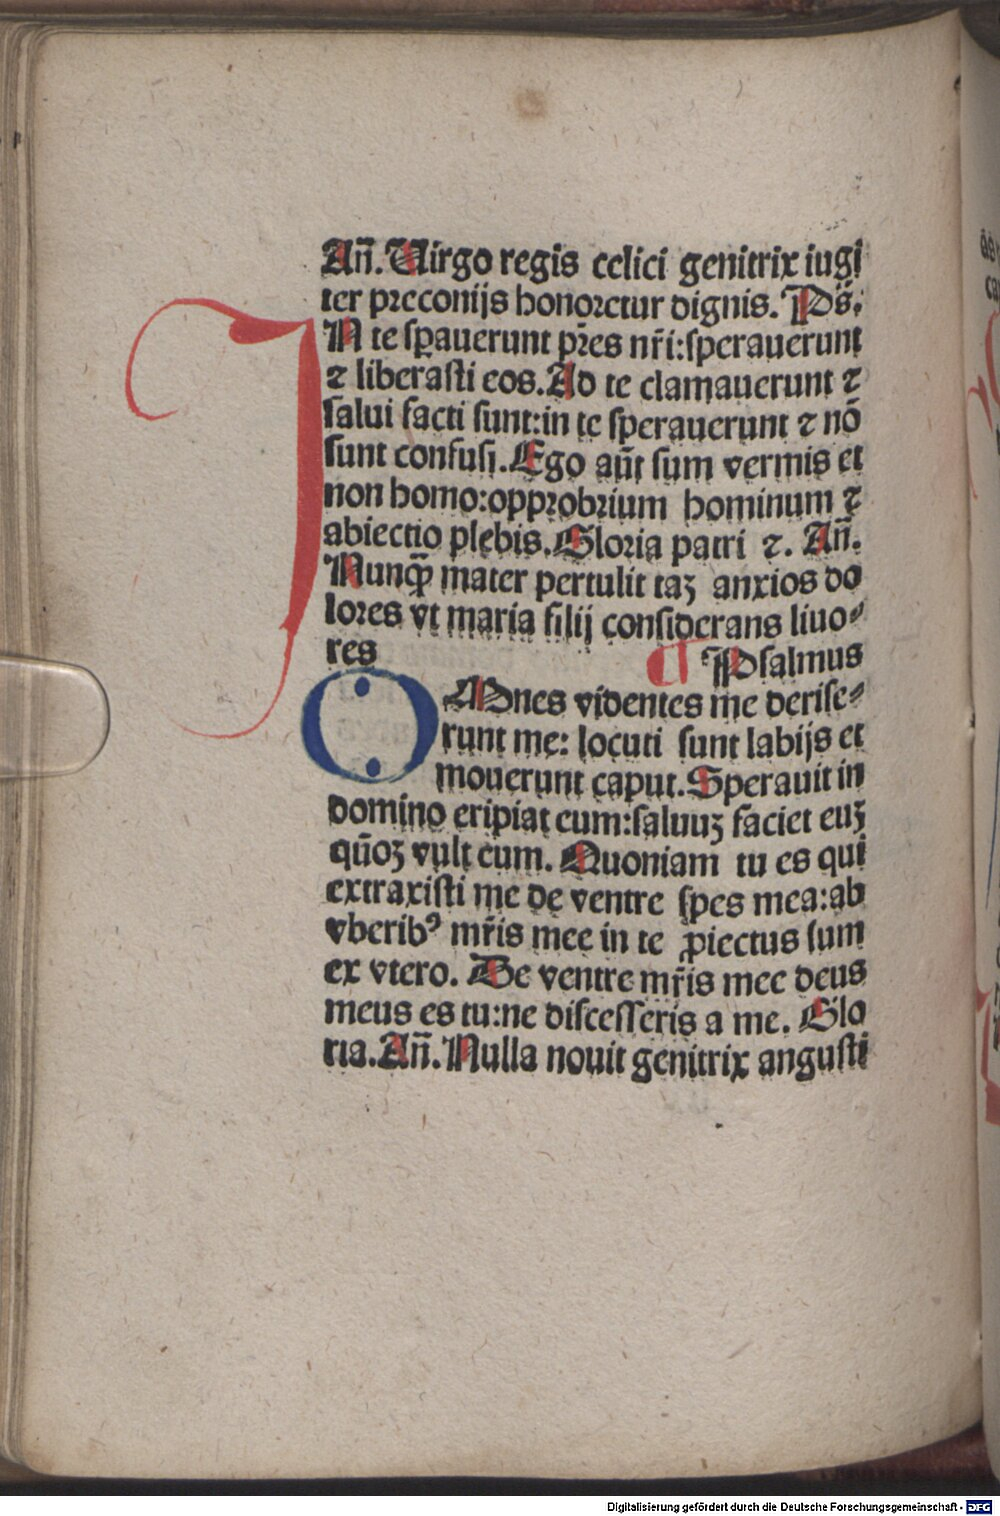 Añ. Uirgo regis celici genitrix iugi
ter preconijs honoretur dignis. Ps̄.
IN te sꝑauerunt pr̄es nr̄i:sperauerunt
⁊ liberasti eos. Ad te clamauerunt ⁊
salui facti sunt:in te sperauerunt ⁊ nō
sunt confusi. Ego aūt sum vermis et
non homo:opprobrium hominum ⁊
abiectio plebis. Gloria patri ⁊. Añ.
Nunꝙ̄ mater pertulit taꝫ anxios do
lores vt maria filij considerans liuo⸗
res ¶ Psalmus
OMnes videntes me derise⸗
runt me: locuti sunt labijs et
mouerunt caput. Sperauit in
domino eripiat eum:saluuꝫ faciet euꝫ
qūoꝫ vult eum. Quoniam tu es qui
extraxisti me de ventre spes mea:ab
vberibꝰ mr̄is mee in te ꝓiectus sum
ex vtero. De ventre mr̄is mee deus
meus es tu:ne discesseris a me. Glo
ria. Añ. Nulla nouit genitrix angusti
Digitalisierung gefördert durch die Deutsche Forschungsgemeinschaft - DFG